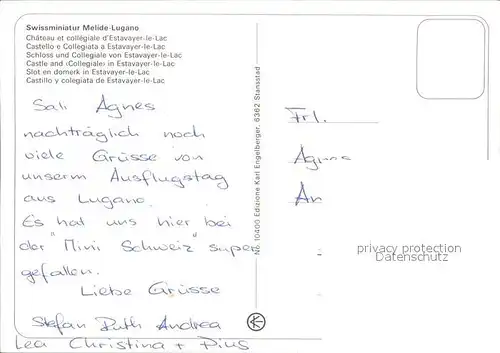 Swissminiatur Melide-Lugano
Château et collégiale d'Estavayer-le-Lac
Castello e Collegiata a Estavayer-le-Lac
Schloss und Collegiale von Estavayer-le-Lac
Castle and ‹Collegiale› in Estavayer-le-Lac
Slot en domerk in Estavayer-le-Lac
Castillo y colegiata de Estavayer-le-Lac
Sali Agnes
nachträglich noch
viele Grüsse von
unserm Ausflugstag
aus Lugano.
Es hat uns hier bei
der "Mini Schweiz" super
gefallen.
Liebe Grüsse
Stefan Ruth Andrea
Lea Christina + Pius
No. 10400 Edizione Karl Engelberger, 6362 Stansstad
Frl.
Agnes
An
privacy protection
Datenschutz